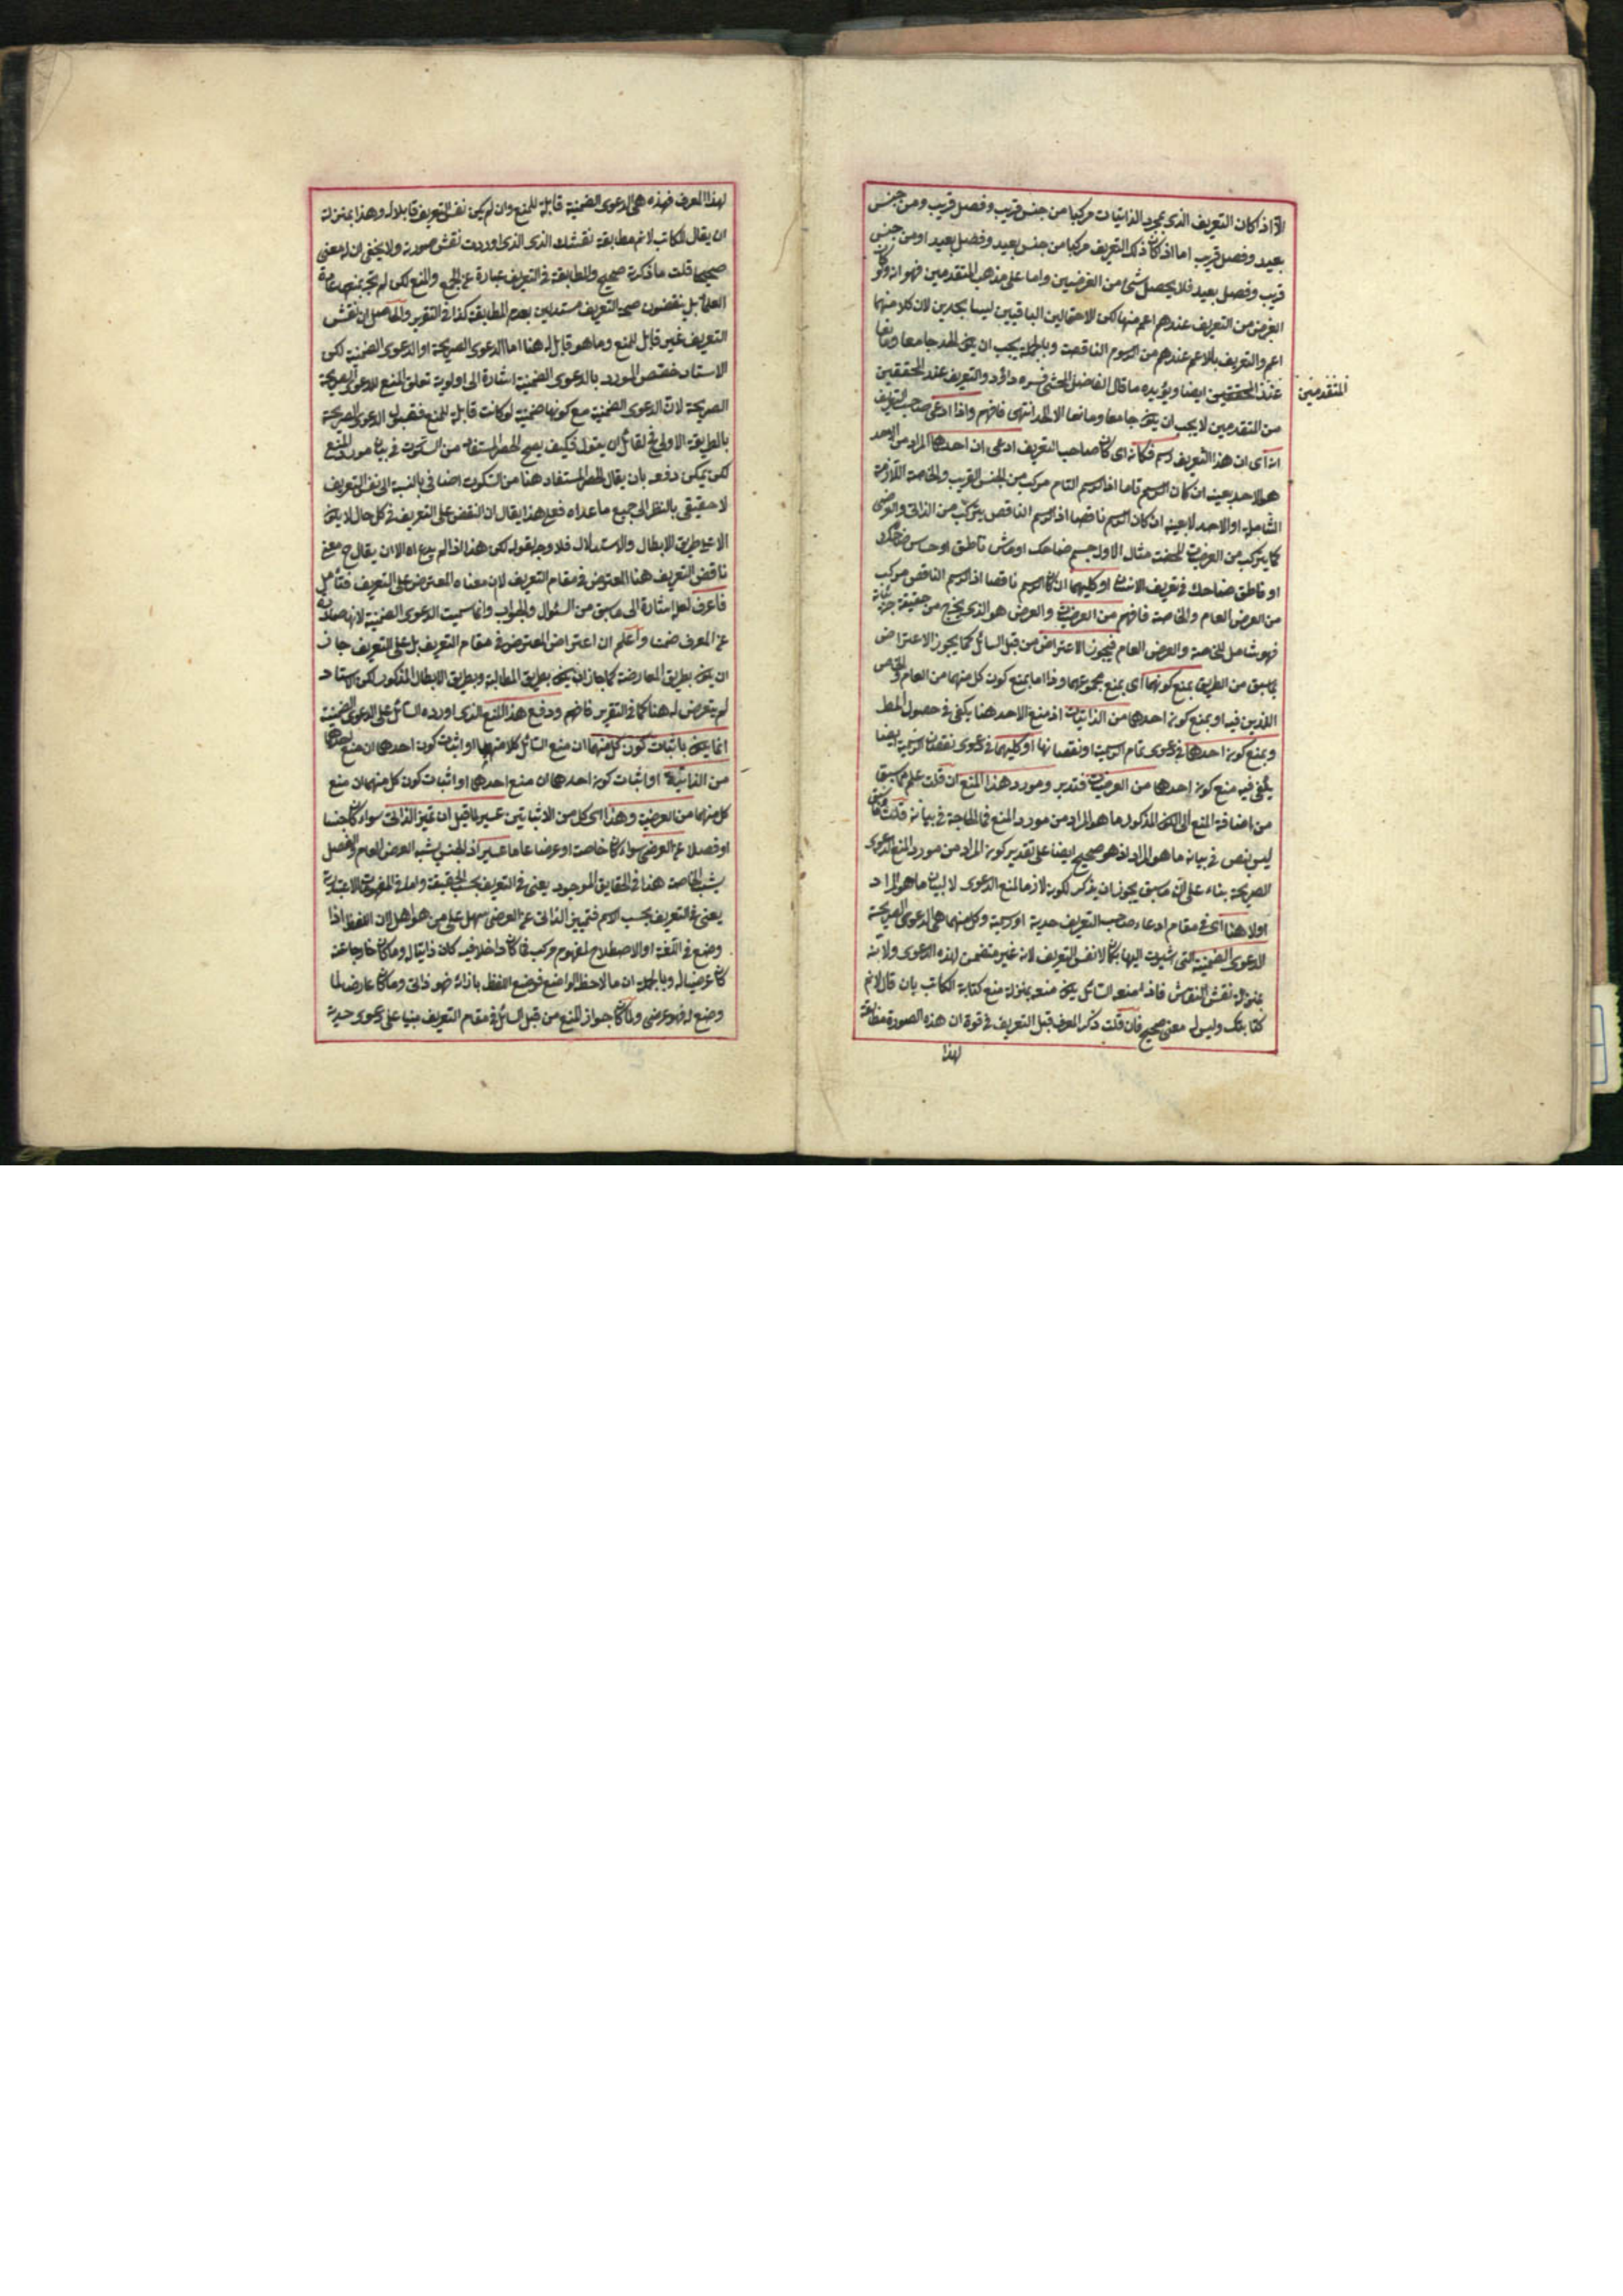 الا اذا كان التعريف الذى بمجرد الذاتيات مركبا من جنس قريب وفصل قريب ومن جنس
بعيد وفصل قريب اما اذا كان ذلك التعريف مركبا من جنس بعيد وفصل بعيد او من جنس
قريب وفصل بعيد فلا يحصل شئ من الغرضين واما على مذهب المتقدمين فهو انه ولو كان
الغرض من التعريف عندهم اعم منها لكن الاحتمالين الباقيين ليسا بحدين لان كلا منهما
اعم والتعريف بالاعم عندهم من الرسوم الناقصة وبالجملة يجب ان يكون الحد جامعا ومانعا
عند المحققين ايضا ويؤيده ما قال الفاضل المحشى قره داؤد والتعريف عند المحققين
المتقدمين
من المتقدمين لا يجب ان يكون جامعا ومانعا الا الحد انتهى فافهم واذا ادعى صاحب التعريف
انه اى ان هذا التعريف رسم فكانه اى كان صاحب التعريف ادعى ان احدهما المراد من الاحد
هو الاحد بعينه ان كان الرسم تاما اذ الرسم التام مركب من الجنس القريب والخاصة اللازمة
الشاملة او الاحد لا بعينه ان كان الرسم ناقصا اذ الرسم الناقص يتركب من الذاتى والعرضى
كما يتركب من العرضيات المحضة مثال الاول جسم ضاحك او ماش ناطق او حساس ضاحك
او ناطق ضاحك فى تعريف الانسان او كليهما ان كان الرسم ناقصا اذ الرسم الناقص مركب
من العرض العام والخاصة فافهم من العرضيات والعرض هو الذى يخرج من حقيقة جزئياته
فهو شامل للخاصة والعرض العام فيجوز الاعتراض من قبل السائل كما يجوز الاعتراض
بما سبق من الطريق بمنع كونهما اى بمنع مجموعهما وذا اما بمنع كون كل منهما من العام والخاص
اللذين فيه او بمنع كونه احدهما من الذاتيات اذ منع الاحد هنا يكفى فى حصول المط
وبمنع كونه احدهما فى دعوى تمام الرسمية او نقصانها او كليهما فى دعوى نقصان الرسمية ايضا
يكفى فيه منع كونه احدهما من العرضيات فتدبر ومورد هذا المنع ان قلت علم مما سبق
من اضافة المنع الى الكون المذكور ما هو المراد من مورد المنع فما الحاجة فى بيانه قلت ما سبق
ليس بنص فى بيانه ما هو المراد اذ هو صحيح ايضا على تقدير كونه المراد من مورد المنع الدعوى
الصريحة بناء على ان ما سبق يجوز ان يذكر لكونه لازما لمنع الدعوى لا لبيان ما هو المراد
اولا هنا اى فى مقام ادعاء صاحب التعريف حدية او رسمية وكل منهما هى الدعوى الصريحة
الدعوى الضمنية التى اشيرت اليها بكان لا نفس التعريف لانه غير متضمن لهذه الدعوى ولانه
بمنزلة نقش النقاش فاذا منعه السائل يكون منعه بمنزلة منع كتابة الكاتب بان قال لا نم
كتابتك وليس له معنى صحيح فان قلت ذكر المعرف قبل التعريف فى قوة ان هذه الصورة مطابقة
لهذا
لهذا المعرف فهذه هى الدعوى الضمنية قابلة للمنع وان لم يكن نفس التعريف قابلا له وهذا بمنزلة
ان يقال للكاتب لا نم مطابقة نقشك الذى الذى اوردت نقش صورته ولا يخفى ان له معنى
صحيحا قلت ما ذكرته صحيح والمطابقة فى التعريف عبارة عن الجمع والمنع لكن لم تجر بمنعها عامة
العلماء بل ينقضون صحة التعريف مستدلين بعدم المطابقة كذا فى التقرير والحاصل ان نقش
التعريف غير قابل للمنع وما هو قابل له هنا اما الدعوى الصريحة او الدعوى الضمنية لكن
الاستاد خصص المورد بالدعوى الضمنية اشارة الى اولوية تعلق المنع للدعوى الصريحة
الصريحة لان الدعوى الضمنية مع كونها ضمنية لو كانت قابلة للمنع فقبول الدعوى الصريحة
بالطريقة الاولى فح لقائل ان يقول فكيف يصح الحصر المستفاد من السكوت فى بيان مورد المنع
لكن يمكن دفعه بان يقال الحصر المستفاد هنا من السكوت اضافى بالنسبة الى نفس التعريف
لا حقيقى بالنظر الى جميع ما عداه فعلى هذا يقال ان النقض على التعريف فى كل حال لا يكون
الا على طريق الابطال والاستدلال فلا وجه لقوله لكن هذا اذا لم يدعاه الا ان يقال ح معنى
ناقض التعريف هنا المعترض فى مقام التعريف لان معناه المعترض على التعريف فتأمل
فاعرف لعله اشارة الى ما سبق من السئوال والجواب وانما سميت الدعوى الضمنية لانها صادرة
عن المعرف ضمنا واعلم ان اعتراض المعترض فى مقام التعريف بل على التعريف جاز
ان يكون بطريق المعارضة كما جاز ان يكون بطريق المطالبة وبطريق الابطال المذكور لكن الاستاد
لم يتعرض له هنا كما فى التقرير فافهم ودفع هذا المنع الذى اورده السائل على الدعوى الضمنية
انما يكون باثبات كون كل منهما ان منع السائل كلا منهما او اثبات كون احدهما ان منع احدهما
من الذاتية او اثبات كونه احدهما ان منع احدهما او اثبات كون كل منهما ان منع
كل منهما من العرضية وهذا اى كل من الاثباتين عسير لما قيل ان تميز الذاتى سواء كان جنسا
او فصلا عن العرضى سواء كان خاصة او عرضا عاما عسير اذ الجنس يشبه العرض العام والفصل
يشبه الخاصة هذا فى الحقايق الموجودة يعنى فى التعريف بحسب الحقيقة واما فى المفهومات الاعتبارية
يعنى فى التعريف بحسب الاسم فتمييز الذاتى عن العرضى سهل على من هو اهل لان اللفظ اذا
وضع فى اللغة او الاصطلاح لمفهوم مركب فما كان داخلا فيه كان ذاتيا له وما كان خارجا عنه
كان عرضيا له وبالجملة ان ما لاحظ الواضع فوضع اللفظ بازائه فهو ذاتى وما كان عارضا لما
وضع له فهو عرضى ولما كان جواز المنع من قبل السائل فى مقام التعريف مبنيا على دعوى حدية